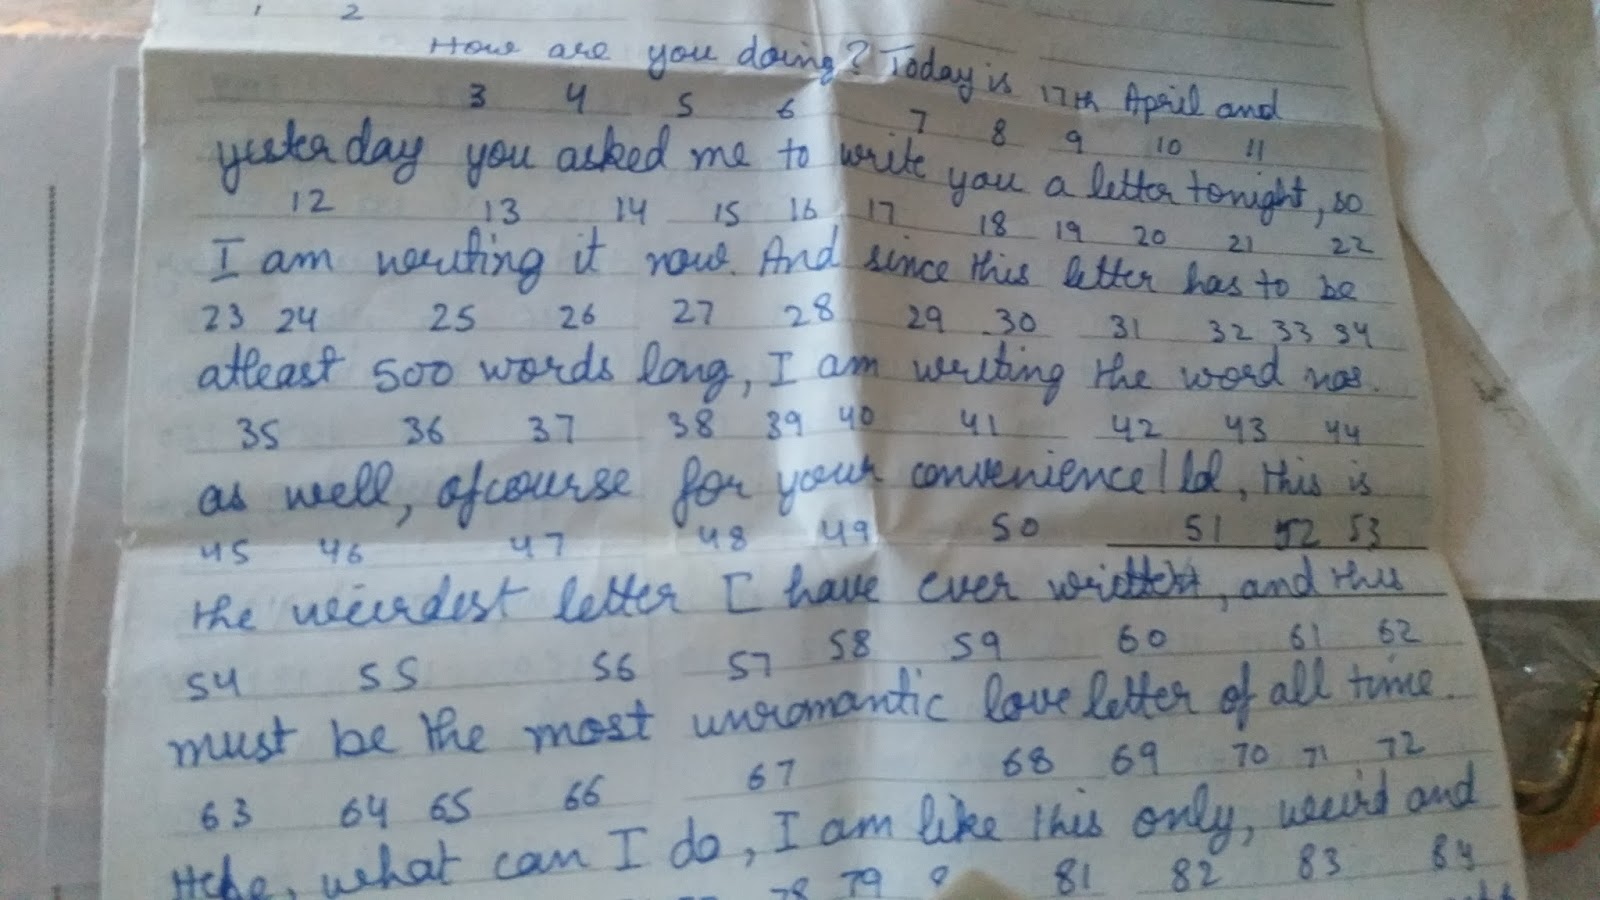 1 2
How are you doing? Today is 17th April and
3 4 5 6 7 8 9 10 11
yesterday you asked me to write you a letter tonight, so
12 13 14 15 16 17 18 19 20 21 22
I am writing it now. And since this letter has to be
23 24 25 26 27 28 29 30 31 32 33 34
atleast 500 words long, I am writing the word nos.
35 36 37 38 39 40 41 42 43 44
as well, ofcourse for your convenience! lol, this is
45 46 47 48 49 50 51 52 53
the weirdest letter I have ever written, and this
54 55 56 57 58 59 60 61 62
must be the most unromantic love letter of all time.
63 64 65 66 67 68 69 70 71 72
Hehe, what can I do, I am like this only, weird and
78 79 81 82 83 84